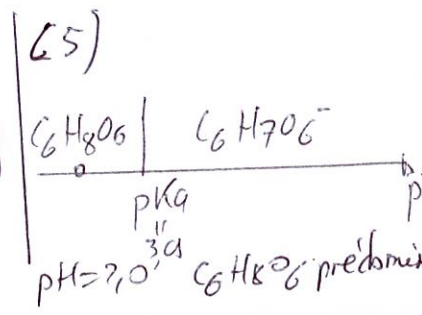 (5)
C6H8O6 | C6H7O6⁻
pKa p
"
pH=2,0 C6H8O6 prédomin